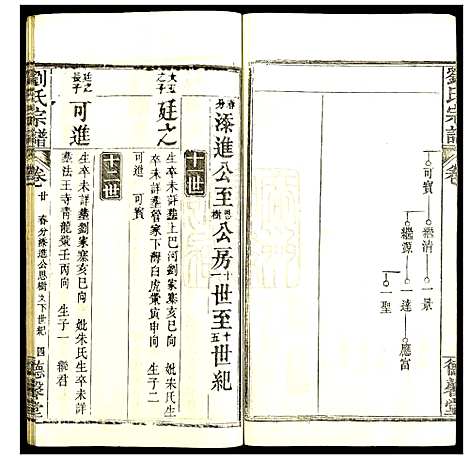 劉氏宗譜
卷
可賓
繼清
一景
繼源
一達
應富
一聖
德馨堂
春分漆進公至恩樹公房十一世至十五世紀
十一世
文玉之子
廷之
生卒未詳葬上巴河劉家寨亥巳向
妣朱氏生
卒未詳葬管家下灣白虎嘴寅申向
生子二
可進
可賓
十二世
廷之長子
可進
生卒未詳葬劉家寨亥巳向
妣朱氏生卒未詳
墓法王寺青龍嘴壬丙向
生子一
繼君
劉氏宗譜
卷廿
春分漆進公思樹文下世紀
四
德馨堂